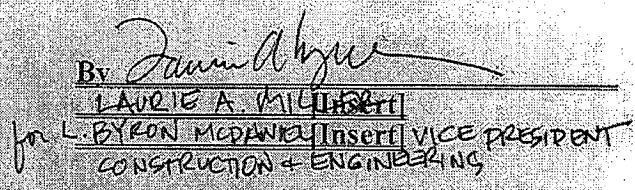 By
LAURIE A. [Insert]
for L. BYRON MCDANIEL [Insert] VICE PRESIDENT
CONSTRUCTION + ENGINEERING